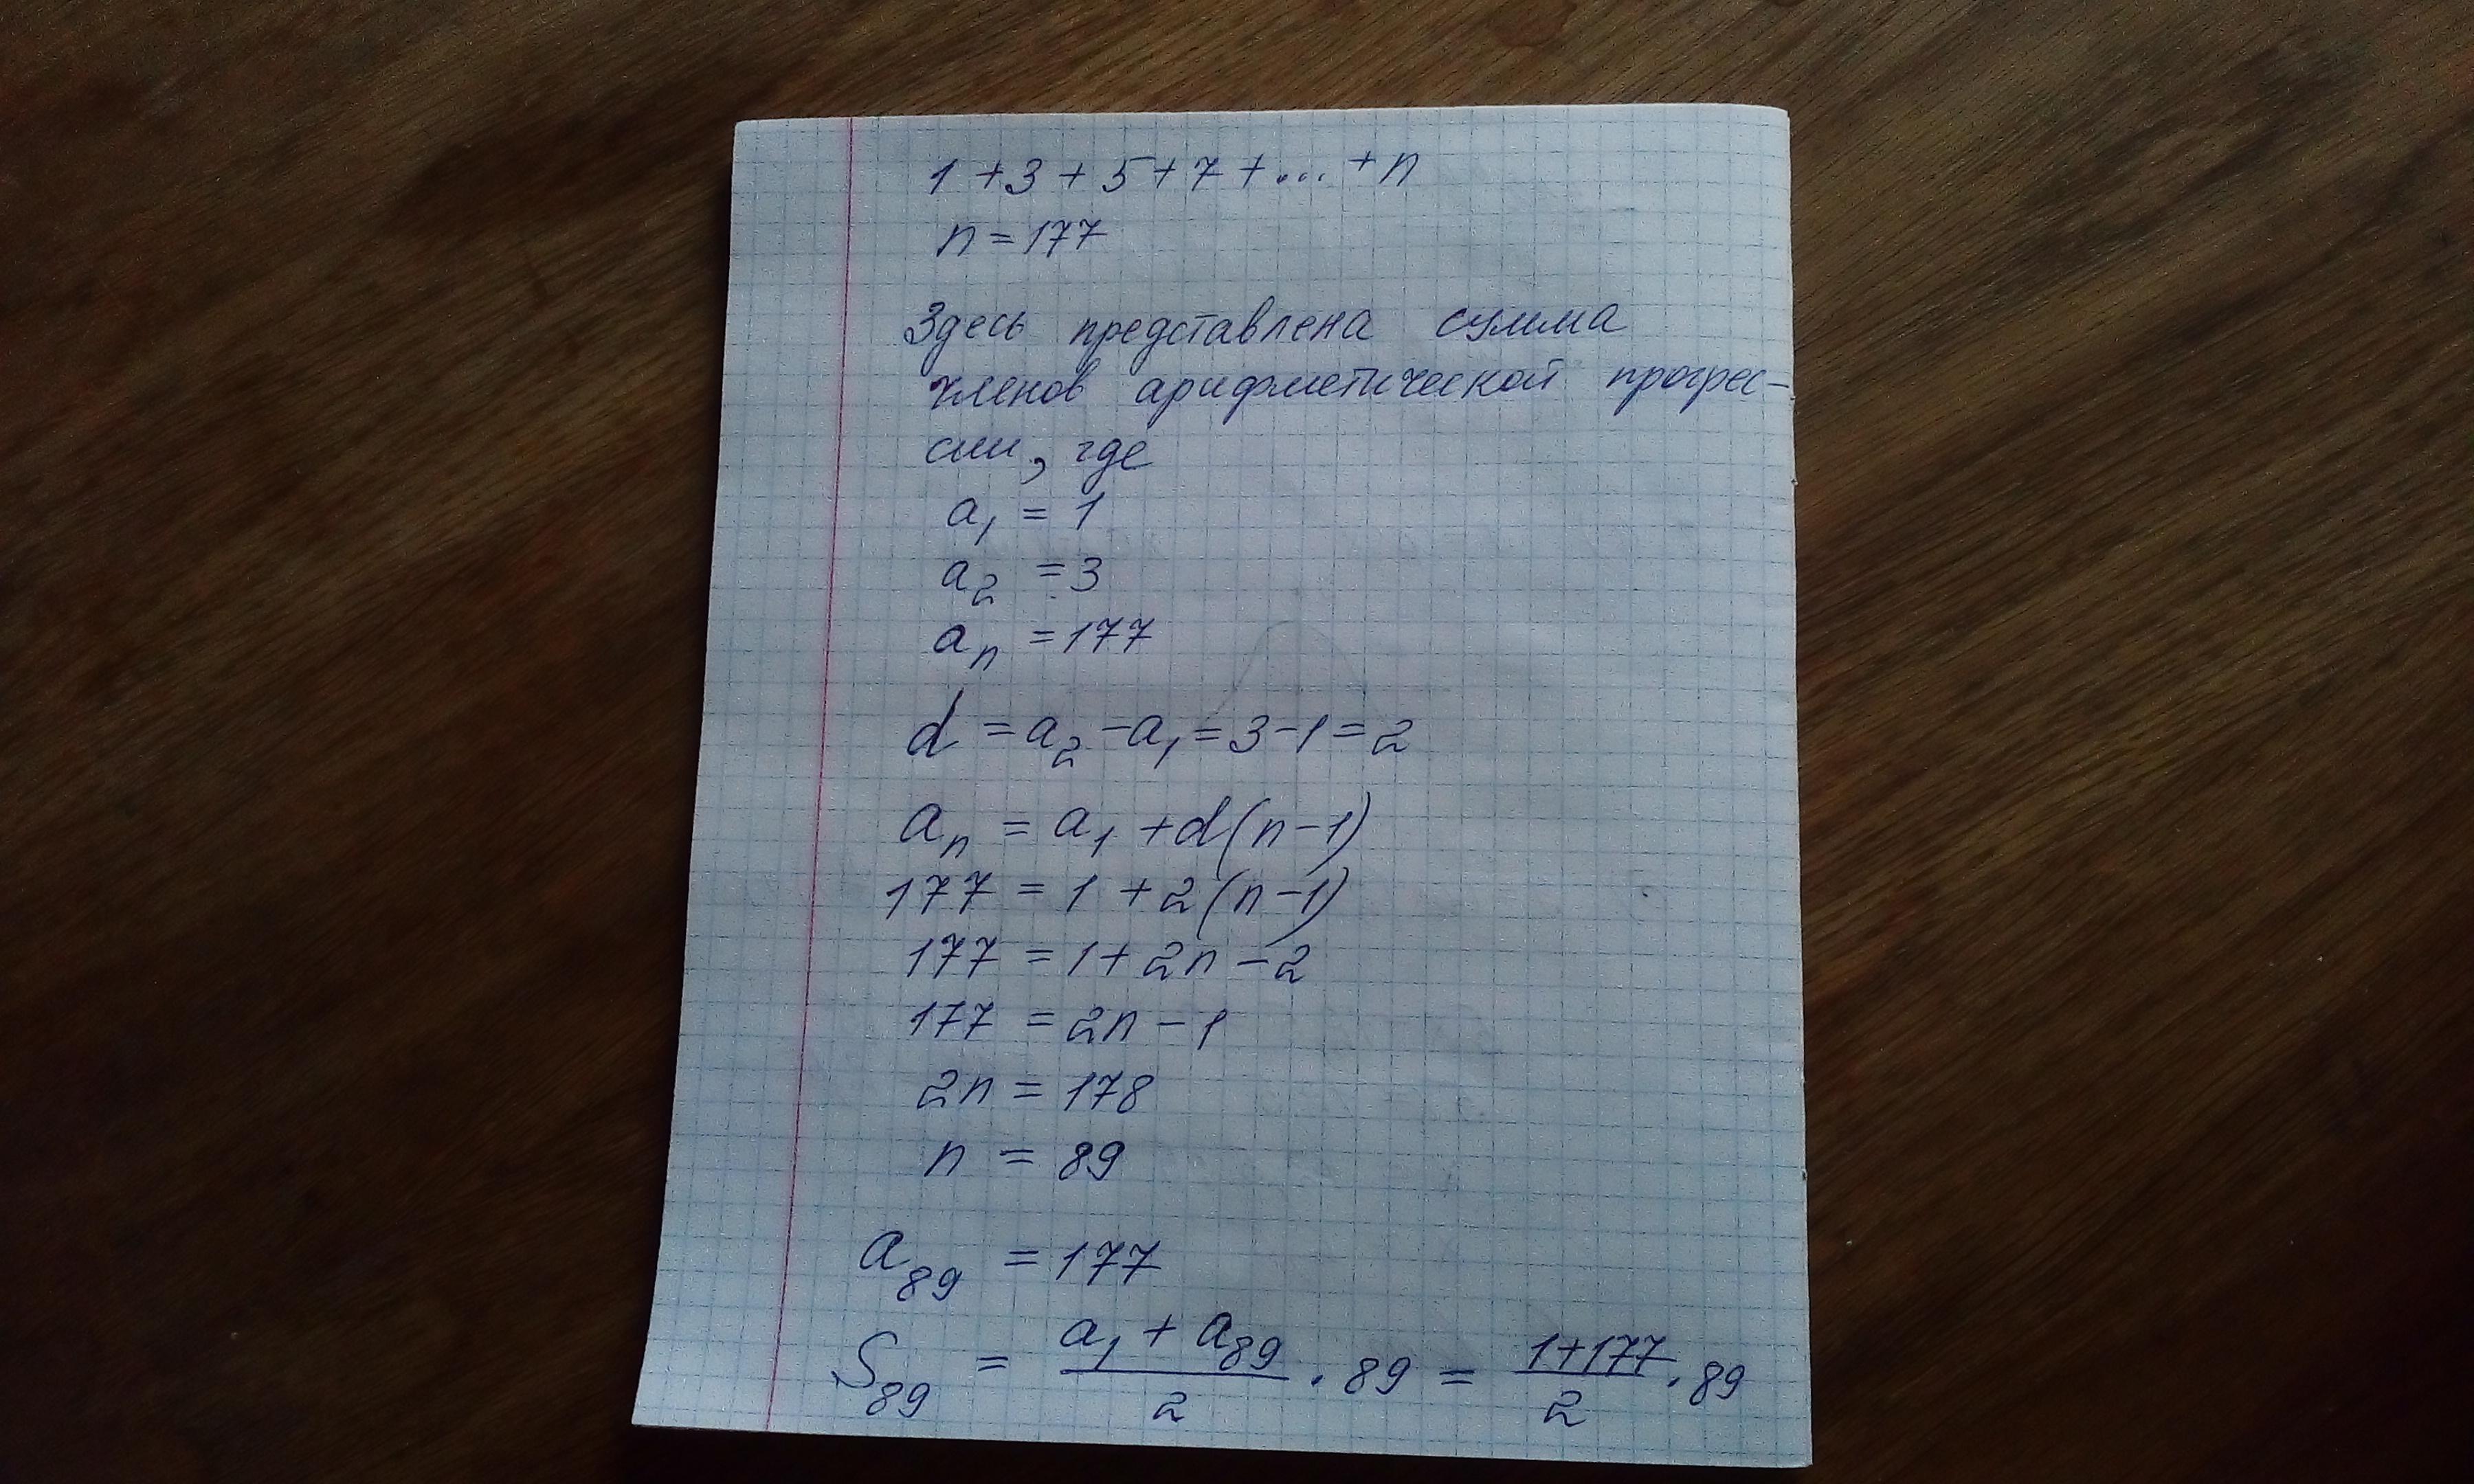 1 + 3 + 5 + 7 + ... + n
n = 177
Здесь представлена сумма
членов арифметической прогрес-
сии, где
a₁ = 1
a₂ = 3
aₙ = 177
d = a₂ - a₁ = 3 - 1 = 2
aₙ = a₁ + d(n - 1)
177 = 1 + 2(n - 1)
177 = 1 + 2n - 2
177 = 2n - 1
2n = 178
n = 89
a₈₉ = 177
S₈₉ = (a₁ + a₈₉)/2 · 89 = (1 + 177)/2 · 89